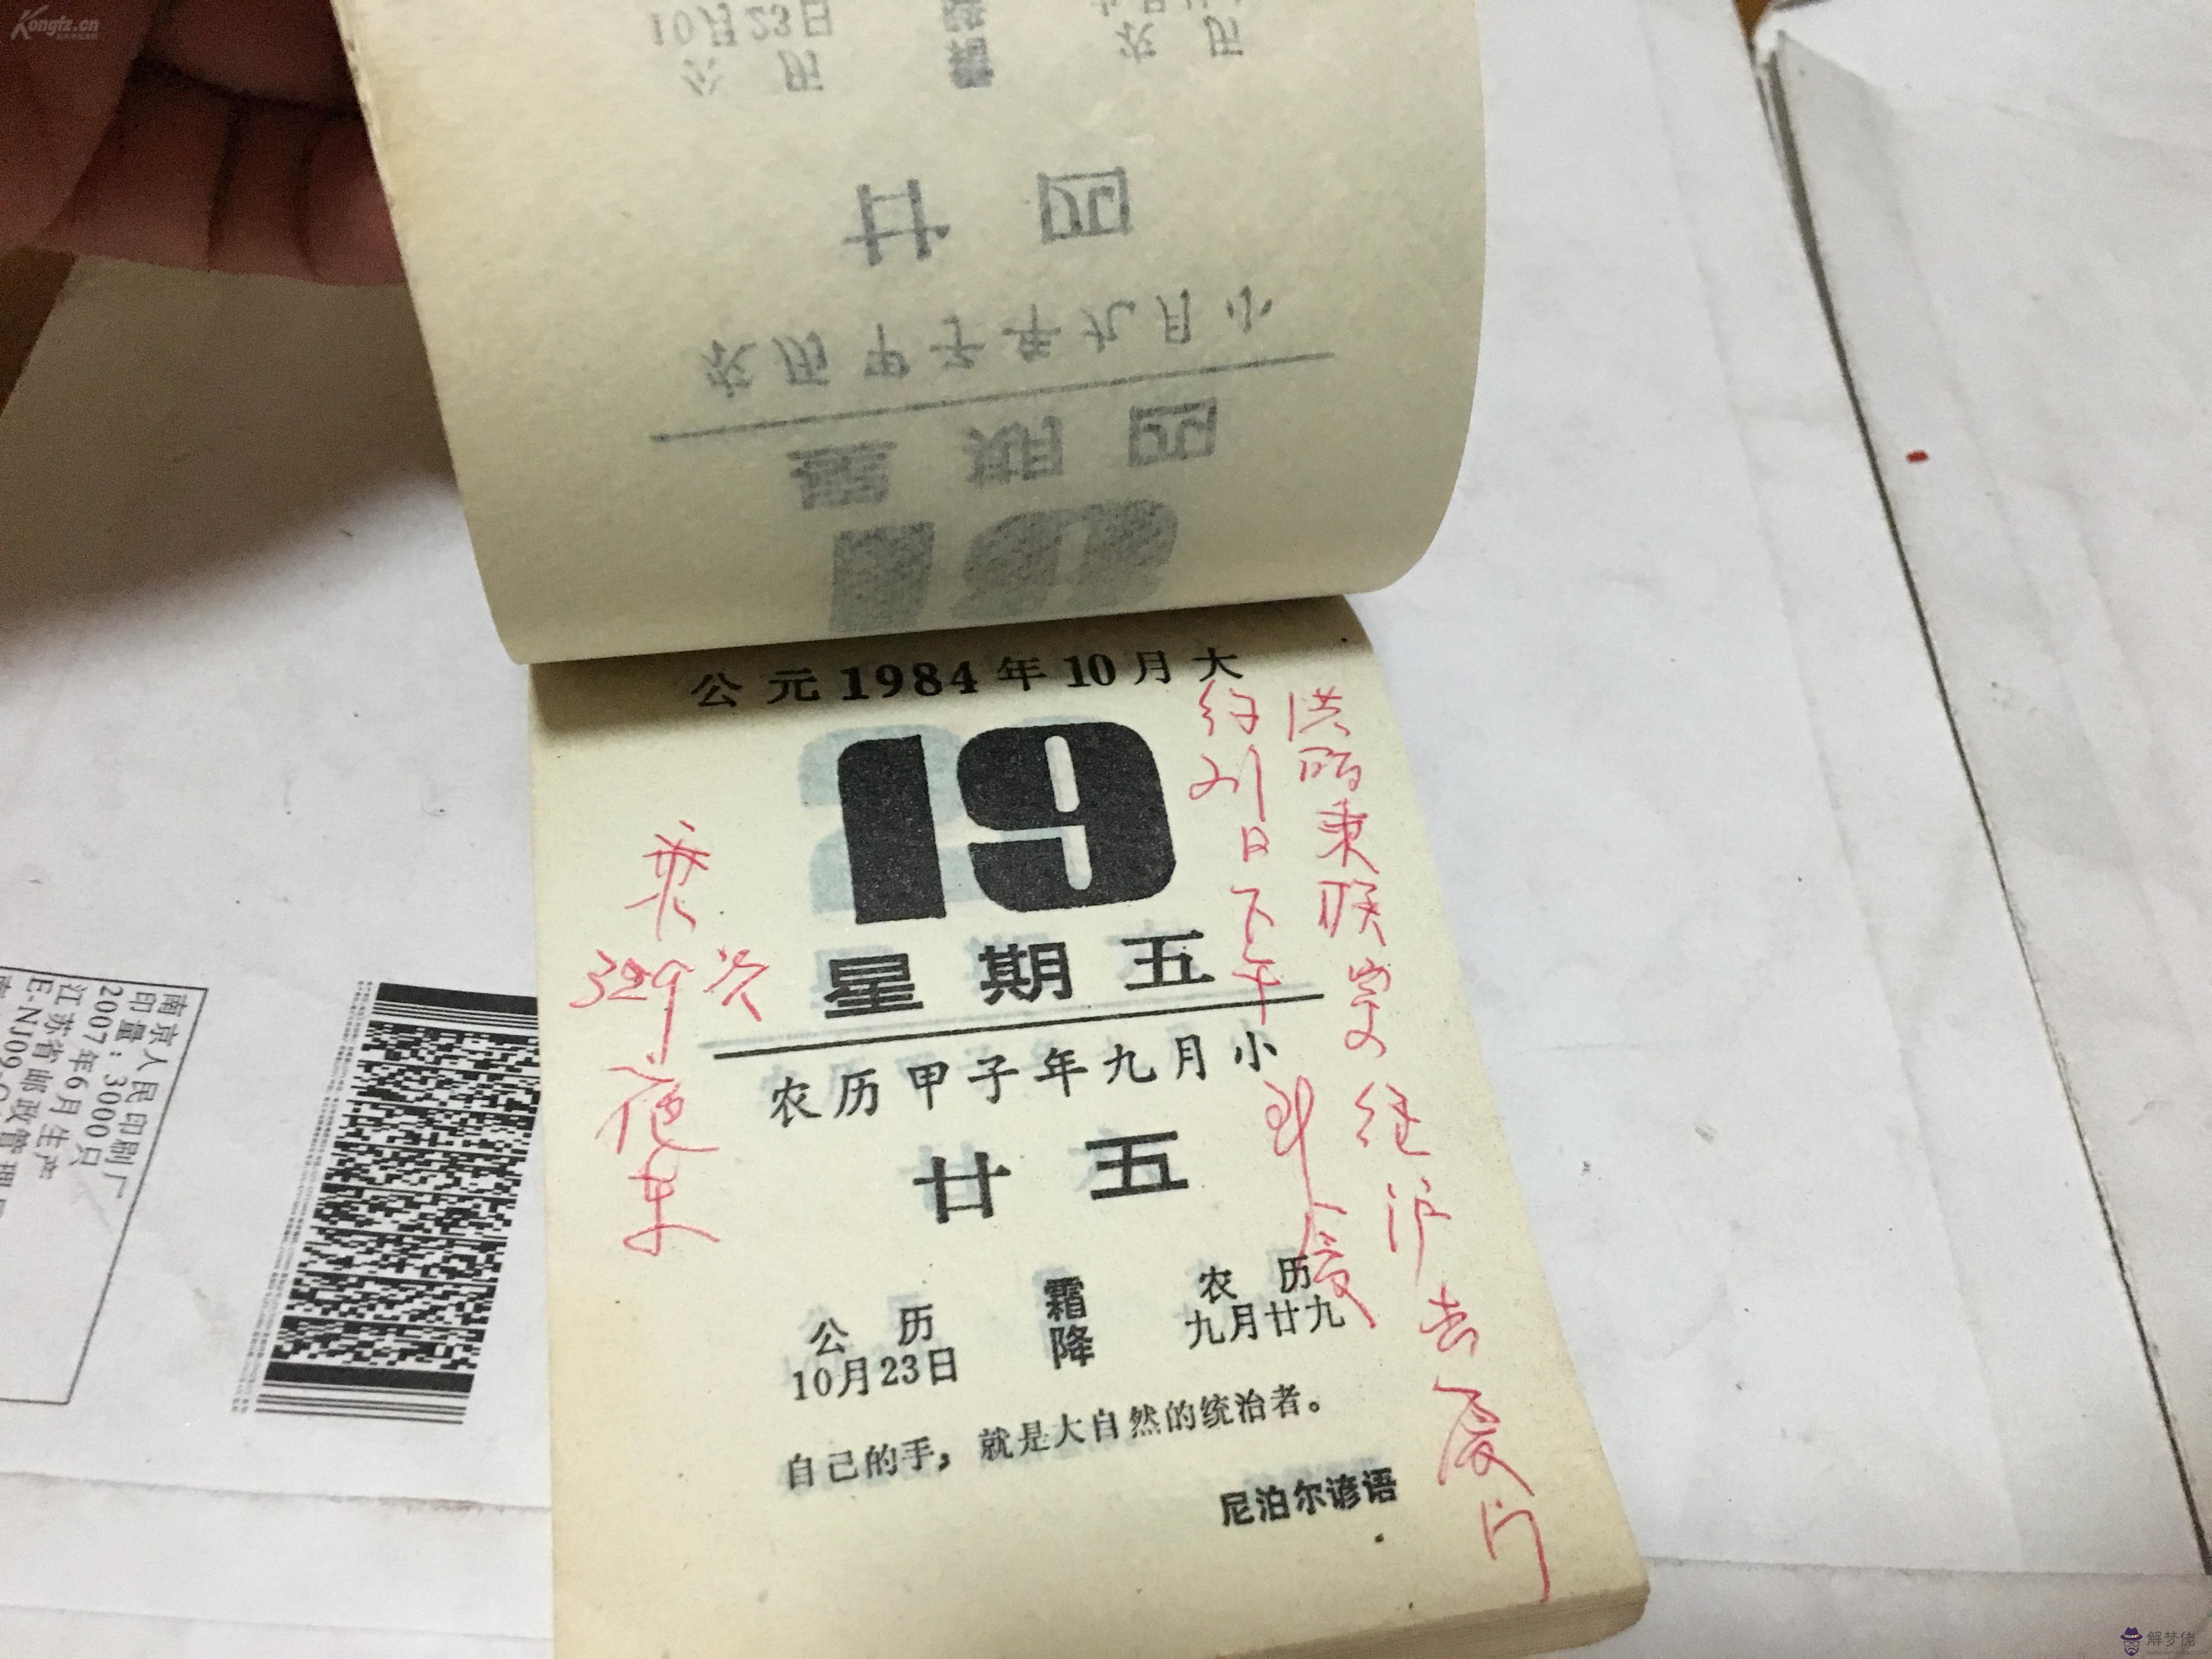 Kongfz.cn
公元1984年10月大
19
星期五
农历甲子年九月小
廿五
公历
10月23日
霜降
农历
九月廿九
自己的手，就是大自然的统治者。
尼泊尔谚语
经沪去厦门
日下午
乘
329次
南京人民印刷厂
印量：3000只
2007年6月生产
江苏省邮政管理
E-NJ09
星期四
农历甲子年九月小
廿四
公历
10月23日
农历
解梦佬